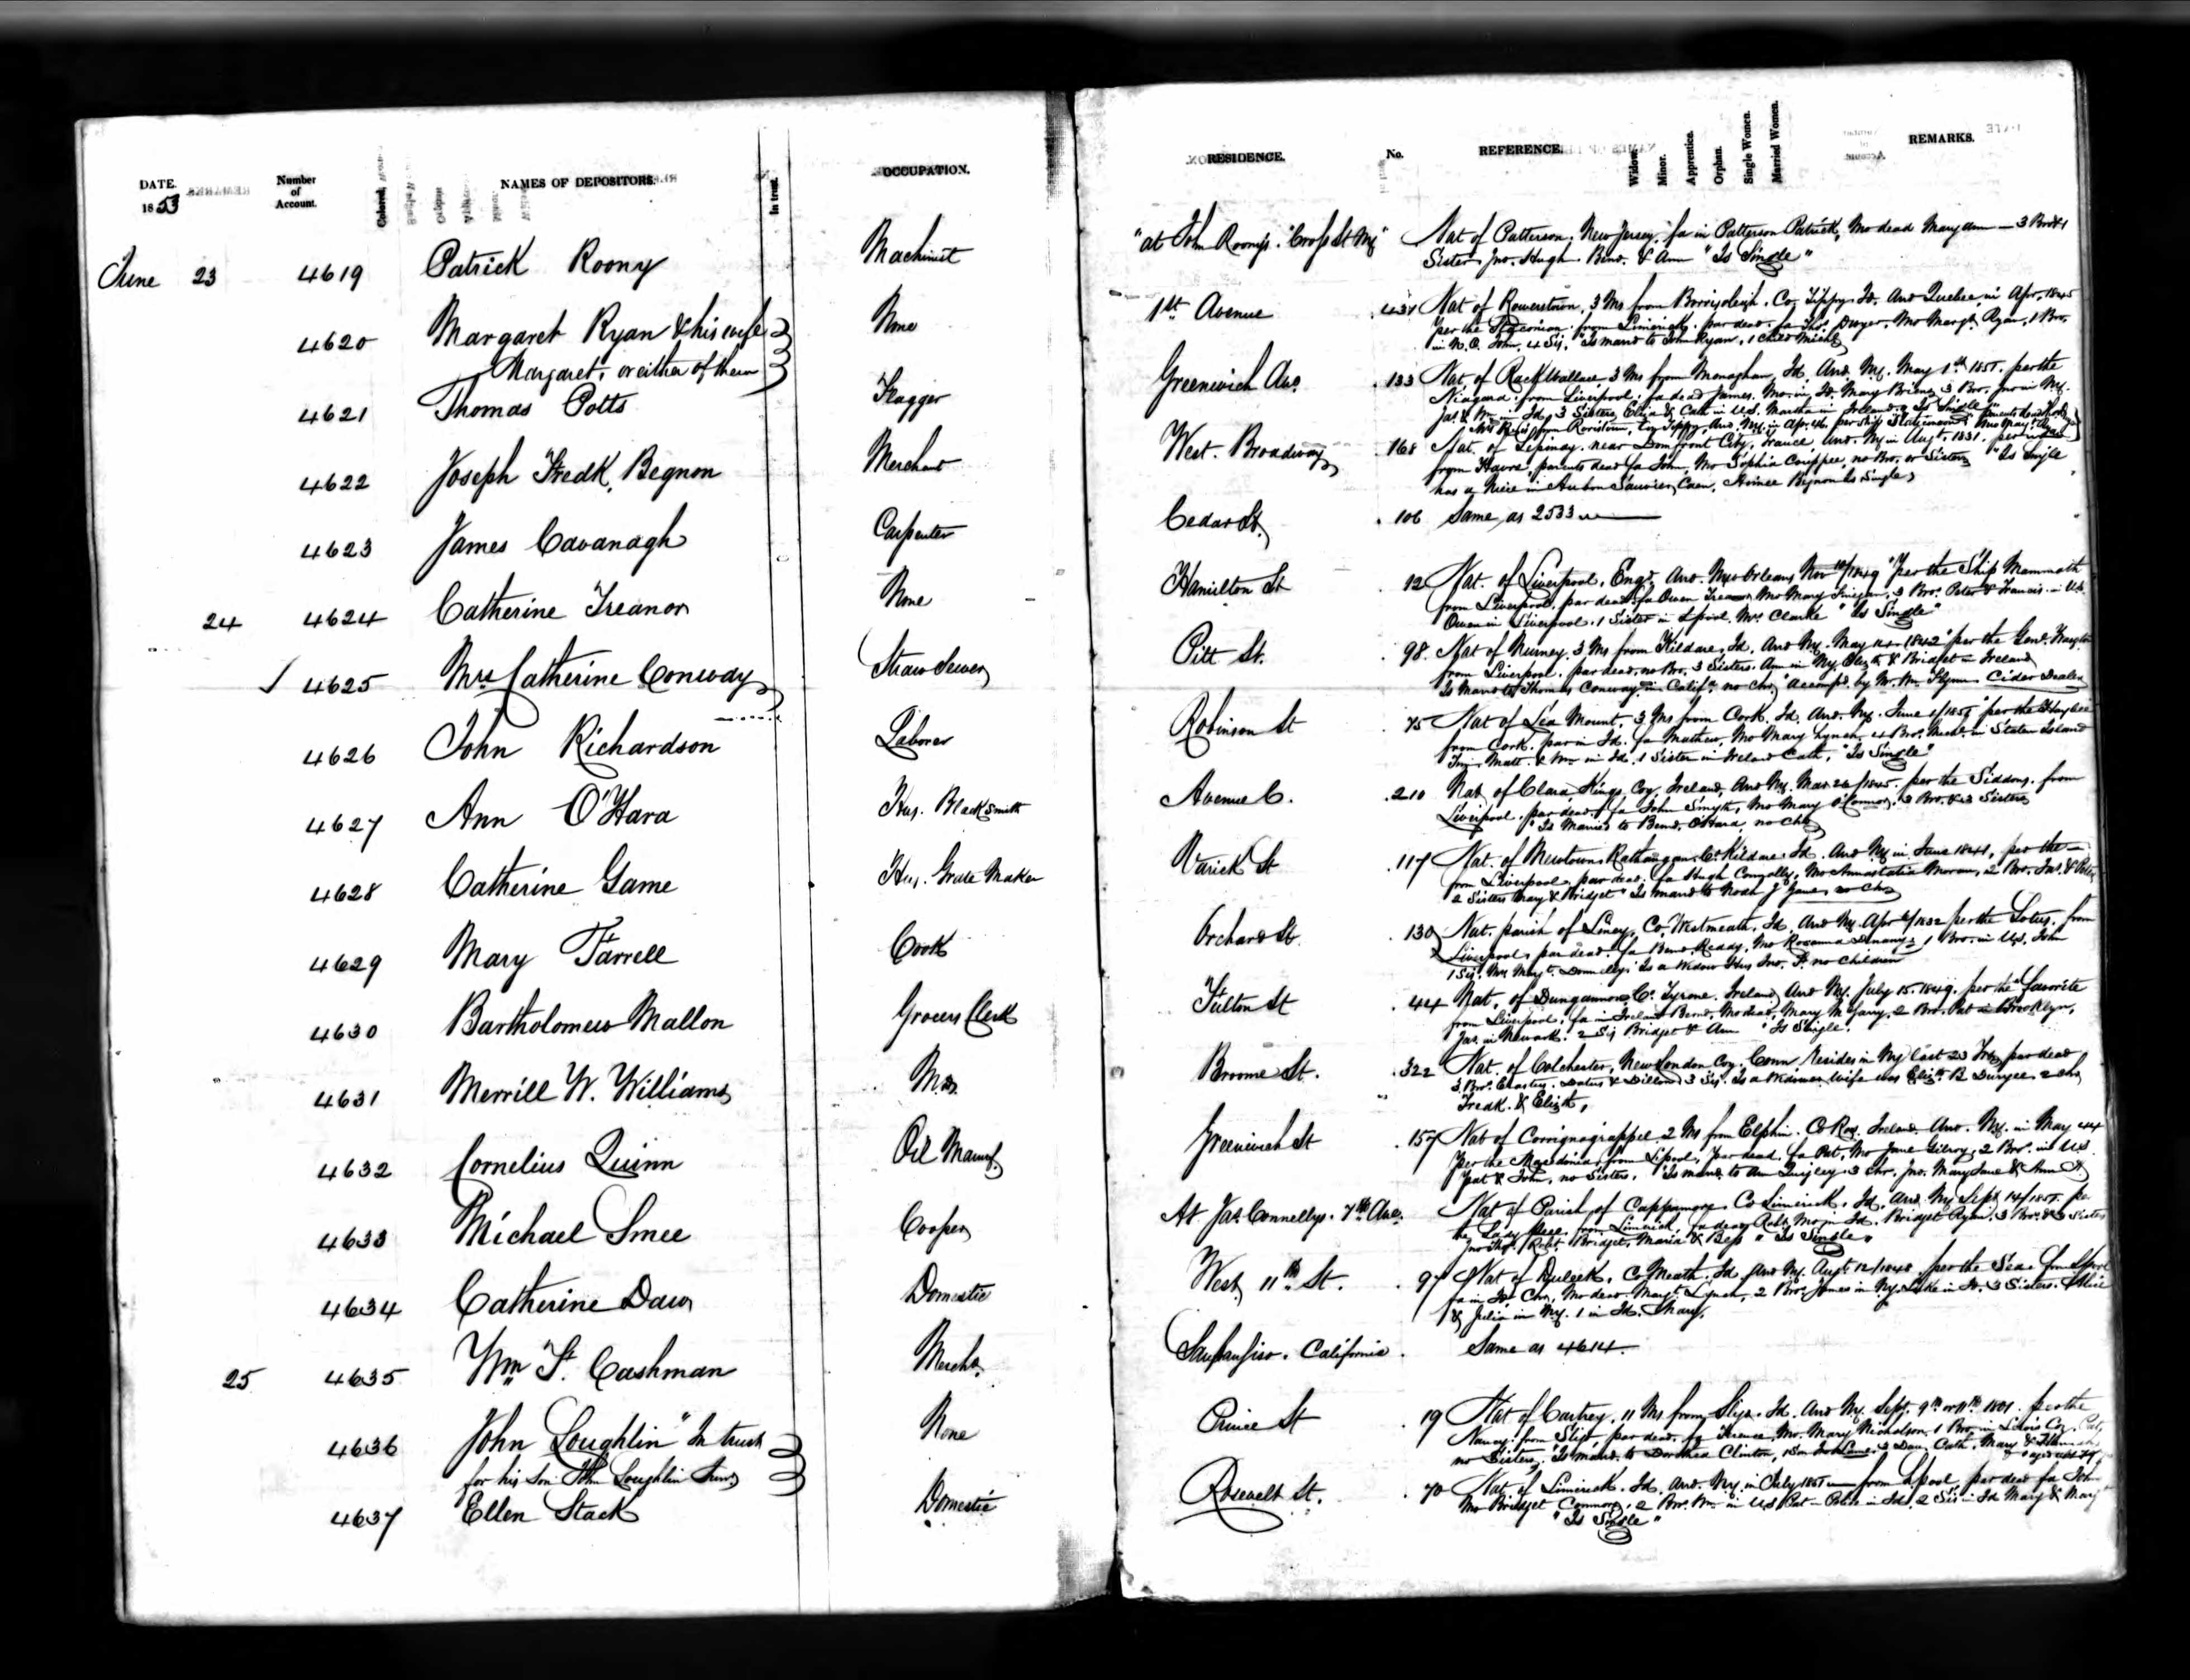 DATE. Number of Account. Colored. NAMES OF DEPOSITORS. In trust. OCCUPATION. RESIDENCE. No. REFERENCE. Widow. Minor. Apprentice. Orphan. Single Women. Married Women. REMARKS.
1853
June 23 4619 Patrick Roony Machinist "at John Roonys. Cross St NY" Nat of Patterson, New Jersey, fa in Patterson Patrick, Mo dead Mary ann — 3 Bro & 1
Sister Jno. Hugh. Bernd. & Ann "Is Single"
4620 Margaret Ryan & his wife None 1st Avenue 431 Nat of 3 Ms from Borrisoleigh. Co. Tippy. Id. Arr Quebec in Apr. 1845
Margaret, or either of them per the from Limerick. par dead. fa Thos. Dwyer. Mo Margt. Ryan, 1 Bro.
in N.O. John, 4 Sis. "Is marrd to John Ryan, 1 child Michl
4621 Thomas Potts Flagger Greenwich Ave. 133 Nat. of Rackwallace 3 Ms from Monaghan, Id. Arr. NY. May 1st per the
Niagara from Liverpool, fa dead James. Mo. in Id. Mary 3 Bro. in NY.
Jas. & Wm in Id. 3 Sisters Eliza & Cath in U.S. Martha in Ireland. "Is Single"
4622 Joseph Fredk. Begnon Merchant West. Broadway 168 Nat. of Lepinay near Domfront City, France, Arr. NY in Augt. 1831. per
from Havre, parents dead fa John, Mo Sophia no Bro. or Sisters "Is Single
has a Niece in Caen,
4623 James Cavanagh Carpenter Cedar St. 106 Same as 2533
24 4624 Catherine Treanor None Hamilton St 12 Nat. of Liverpool. Engd. Arr. New Orleans Nov 10/1849 "per the Ship Mammoth
from Liverpool. par dead. fa Owen Treanor Mo Mary 3 Bro. Peter & Francis in U.S.
Owen in Liverpool. 1 Sister in Lpool. Mrs. Clarke "Is Single"
4625 Mrs Catherine Conway Straw Sewer Pitt St. 98 Nat of Nurney. 3 Ms from Kildare, Id. Arr NY. May 1842 "per the Genl.
from Liverpool. par dead, no Bro. 3 Sisters. Ann in NY. Elizth. & Bridget in Ireland
Is Marrd to Thomas Conway in Calif. no chn, "accompd. by Mr. Wm. Flynn Cider Dealer
4626 John Richardson Laborer Robinson St 75 Nat of Lea Mount, 3 Ms from Cork. Id. Arr. NY. June per the
from Cork. par in Id. fa Mathew, Mo Mary Lynch. 4 Bro. Michl. in Staten Island
Matt. & Wm in Id. 1 Sister in Ireland Cath, "Is Single"
4627 Ann O'Hara Hus. Black Smith Avenue C. 210 Nat of Clara, Kings Coy, Ireland, Arr NY. Mar 26/1845. per the Siddons. from
Liverpool. par dead, fa John Smyth, Mo Mary O'Connor, 3 Bro. & 3 Sisters
"Is Married to Bernd. O'Hara, no Chn
4628 Catherine Game Hus. Grate Maker Varick St 117 Nat. of Newtown Rathangan, Co Kildare Id. Arr NY in June 1841, per the —
from Liverpool, par dead. fa Hugh Connolly, Mo Annastatia Moran, 2 Bro. Jas. & Peter
2 Sisters Mary & Bridget "Is marrd to Noah J Game, no chn
4629 Mary Farrell Cook Orchard St. 130 Nat. parish of Co. Westmeath, Id. Arr NY. Apr per the Lotus. from
Liverpool, par dead. fa Bernd. Reddy, Mo Rosanna 1 Bro. in U.S. John
1 Sis. Mrs Margt. Donnelly, Is a Widow Hus Jno. F. no children
4630 Bartholomew Mallon Grocers Clerk Fulton St 44 Nat. of Dungannon, Co. Tyrone. Ireland, Arr NY. July 15. 1849. per the Favorite
from Liverpool, fa in Ireland Bernd. Mo dead, Mary McGarry. 2 Bro. Pat in Brooklyn,
Jas. in Newark. 2 Sis Bridget & Ann "Is Single.
4631 Merrill W. Williams Broome St. 322 Nat. of Colchester, New London Coy. Conn Resides in NY last 23 yrs par dead
3 Bro. & 3 Sis. Is a Widower Wife was Elizth B Duryee 2 Chn
Fredk. & Elizth,
4632 Cornelius Quinn Oil Manuf. Greenwich St 157 Nat of 2 Ms from Elphin. Co Ros. Ireland. Arr. NY. in May 44
per the Macedonia, from Lpool, par dead. fa Pat, Mo Jane Gilroy, 2 Bro. in U.S.
Pat & John, no Sisters. "Is marrd. to Ann Quigley, 3 chn. Jno. Mary Jane & Ann
4633 Michael Smee Cooper At Jas. Connellys. 7th Ave. Nat of Parish of Cappamore, Co Limerick, Id. Arr. NY Sept 14 per
the Lady Peel. from Limerick. fa dead Robt. Mo in Id. Bridget Ryan, 3 Bro. & 3 Sisters
Robt. Bridget, Maria & Bess "Is Single"
4634 Catherine Daw Domestic West 11th St. 97 Nat of Duleek. Co Meath. Id. Arr NY. Augt 12/1848 per the Sea from Lpool
fa in Id. Mo dead. Margt Lynch, 2 Bro. James in NY. Luke in Id. 3 Sisters. Alice
& Julia in NY. 1 in Id. Mary,
25 4635 Wm F. Cashman Mercht. California. Same as 4614.
4636 John Loughlin "In trust None Prince St 19 Nat of 11 Ms from Sligo. Id. Arr NY. Sept. 9th or 11th per the
for his son John Loughlin Junr. Nancy from Sligo, par dead. fa Terence, Mo. Mary Nicholson. 1 Bro. in Lewis Coy. Pat,
no Sisters, "Is marrd. to Dorothea Clinton, 1 Son John 3 Dau. Cath. Mary &
4637 Ellen Stack Domestic Rosevelt St. 70 Nat of Limerick. Id. Arr. NY. in July from Lpool, par dead fa John
Mo Bridget Connors, 2 Bro. Wm in U.S. Pat in Id, 2 Sis in Id Mary & Margt
"Is Single"